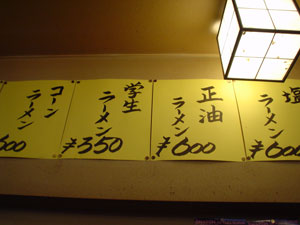 コーン
ラーメン
600
学生
ラーメン
¥350
正油
ラーメン
¥600
ラーメン
¥600